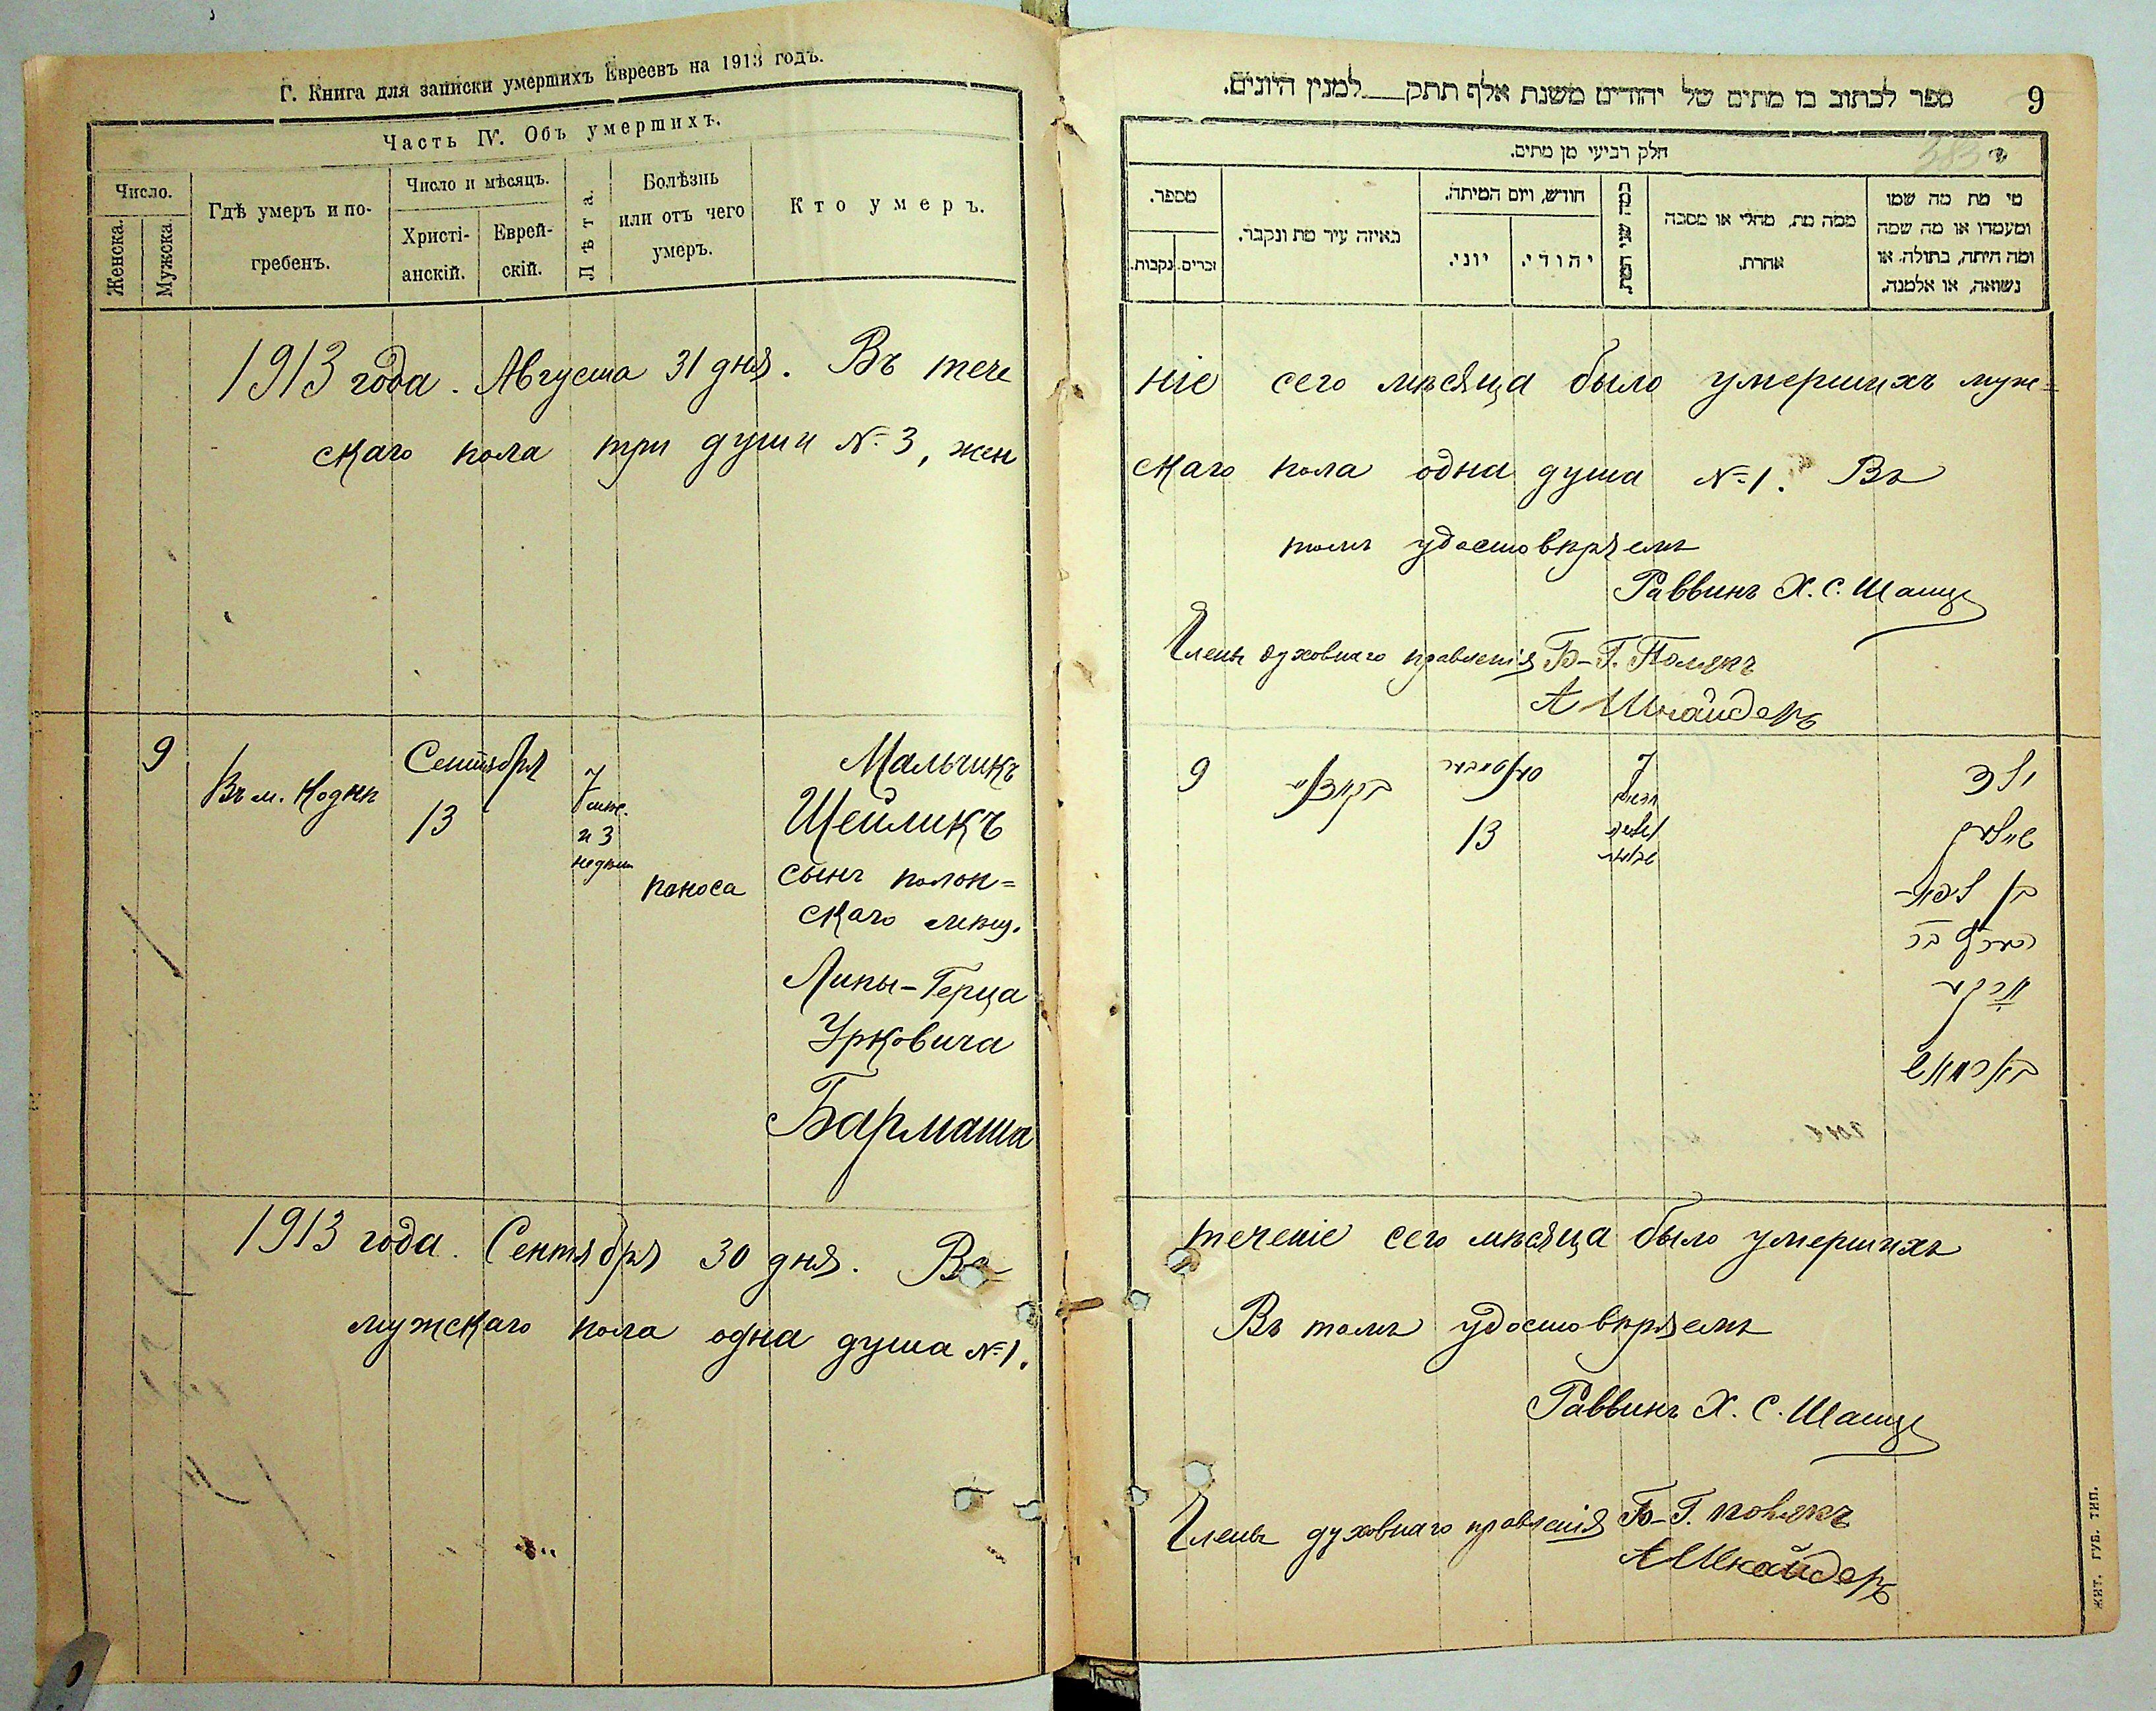 Г. Книга для записки умершихъ Евреевъ на 1913 годъ.
Часть IV. Объ умершихъ.
Число.
Женска.
Мужска
Гдѣ умеръ и по-
гребенъ.
Число и мѣсяцъ.
Христі-
анскій.
Еврей-
скій.
Лѣта.
Болѣзнь
или отъ чего
умеръ.
Кто умеръ.
1913 года. Августа 31 дня. Въ тече
скаго пола три души №3, жен
9
Въ м.
Сентября
13
7
и 3
поноса
Мальчикъ
Шейликъ
сынъ полон=
скаго мѣщ.
Липы-Герца
Урковича
Бармаша
1913 года. Сентября 30 дня. Въ
мужскаго пола одна душа №1.
ספר לכתוב בו מתים של יהודים משנת אלף תתק___למנין היונים.
9
חלק רביעי מן מתים.
מספר.
נקבות.
זכרים.
באיזה עיר מת ונקבר.
חודש, ויום המיתה.
יוני.
יהודי.
ממה מת, מחלי או מסבה
אחרת.
מי מת מה שמו
ומעמדו או מה שמה
ומה היתה, בתולה, או
נשואה, או אלמנה.
ніе сего мѣсяца было умершихъ муж=
скаго пола одна душа №1. Въ
томъ удостовѣряемъ
Раввинъ Х. С.
Члены духовнаго правленія Б-Г. Полякъ
А Шнайдеръ
9
13
7
ילד
בן
теченіе сего мѣсяца было умершихъ
Въ томъ удостовѣряемъ
Раввинъ Х. С.
Члены духовнаго правленія Б-Г. Полякъ
А Шнайдеръ
ЖИТ. ГУБ. ТИП.